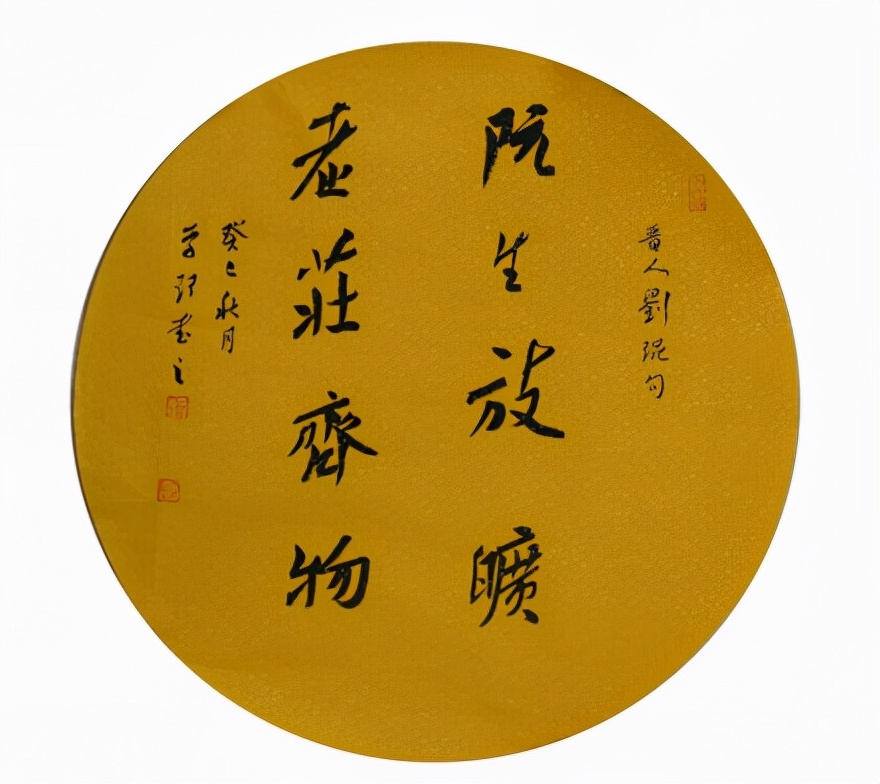 晉人劉琨句
阮生放曠
老莊齊物
癸巳秋月
書之